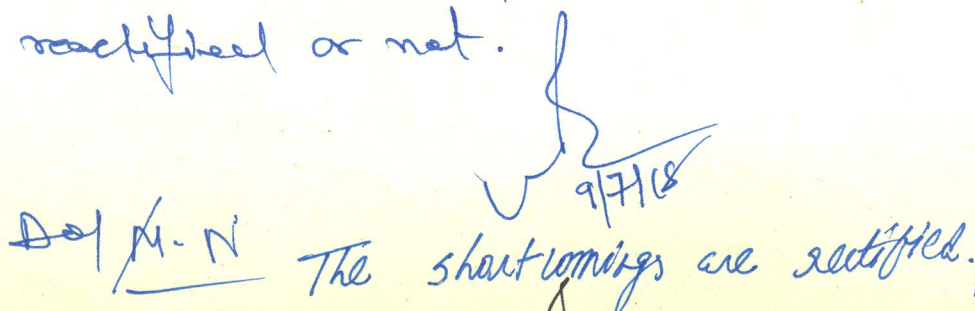 reactified or not.
9/7/18
Do/ M. N
The shortcomings are rectified.